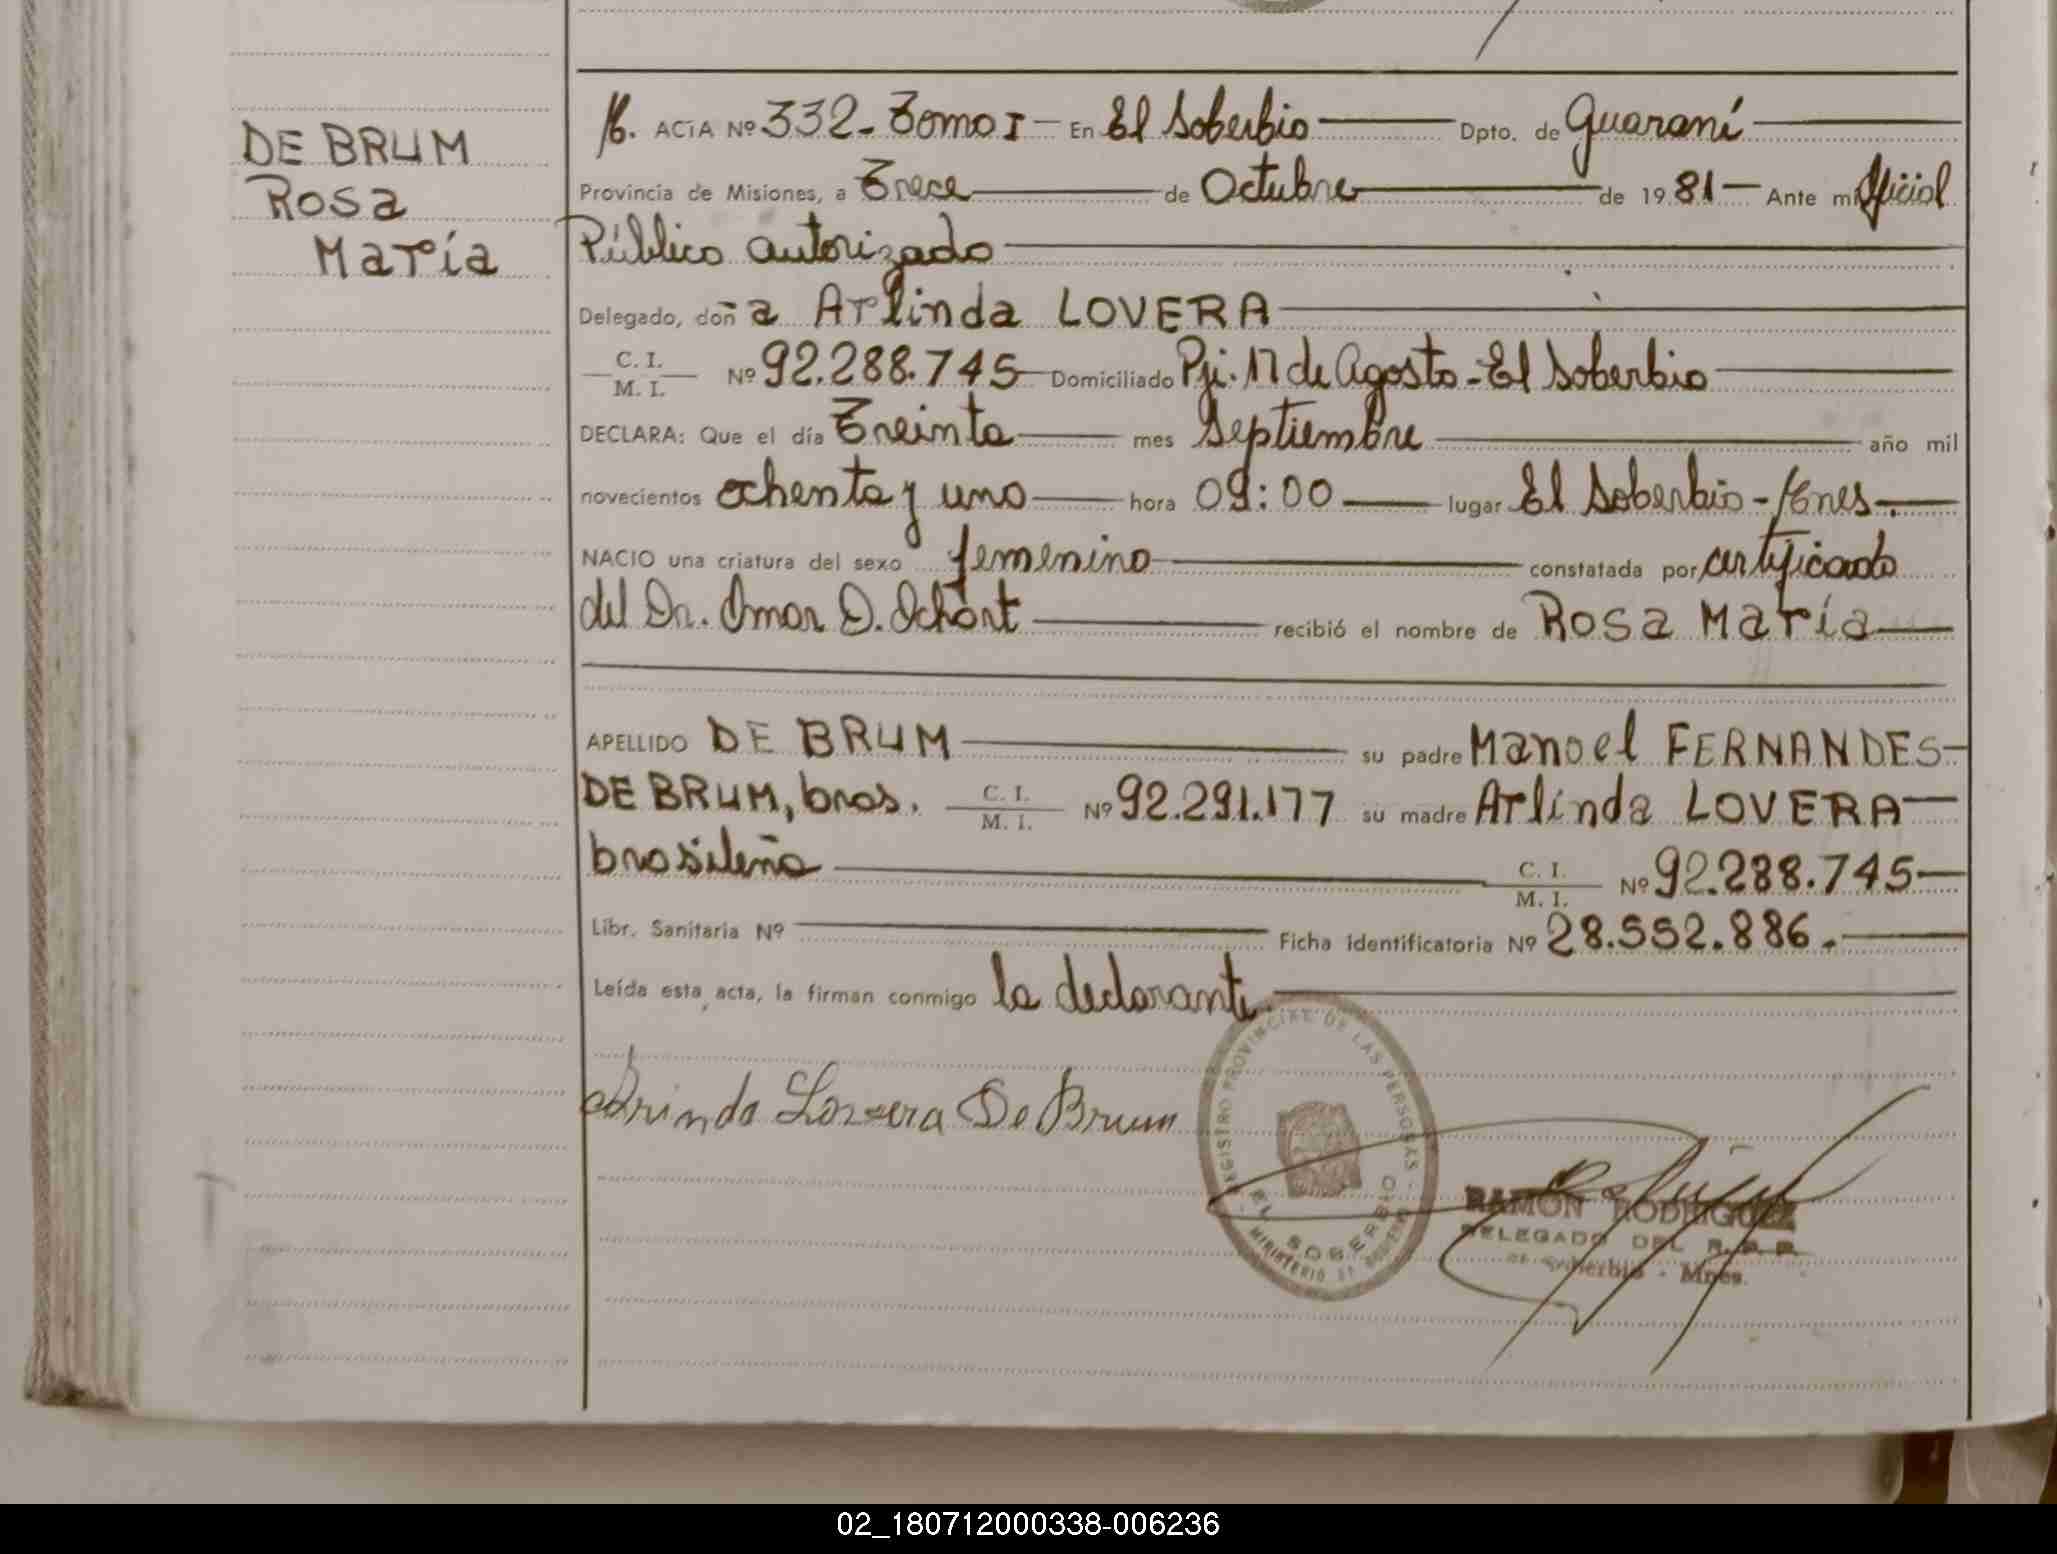 DE BRUM
Rosa
María
ACTA Nº 332-Tomo I - En El Soberbio Dpto. de Guaraní
Provincia de Misiones, a Trece de Octubre de 1981 - Ante mi Oficial
Público autorizado
Delegado, doña Arlinda LOVERA
C. I.
M. I. Nº 92.288.745 Domiciliado Pje. 17 de Agosto - El Soberbio
DECLARA: Que el día Treinta mes Septiembre año mil
novecientos ochenta y uno hora 09:00 lugar El Soberbio - Mnes.
NACIO una criatura del sexo femenino constatada por certificado
del Dr. Omar O. recibió el nombre de Rosa María
APELLIDO DE BRUM su padre Manoel FERNANDES
DE BRUM, bras. C. I. M. I. Nº 92.291.177 su madre Arlinda LOVERA
brasileña C. I. M. I. Nº 92.288.745
Libr. Sanitaria Nº Ficha identificatoria Nº 28.552.886.
Leída esta acta, la firman conmigo la declarante.
Arinda Lovera De Brum
REGISTRO PROVINCIAL DE LAS PERSONAS
EL SOBERBIO
MINISTERIO DE GOBIERNO
RAMON RODRIGUEZ
DELEGADO DEL R. P. P.
El Soberbio - Mnes.
02_180712000338-006236